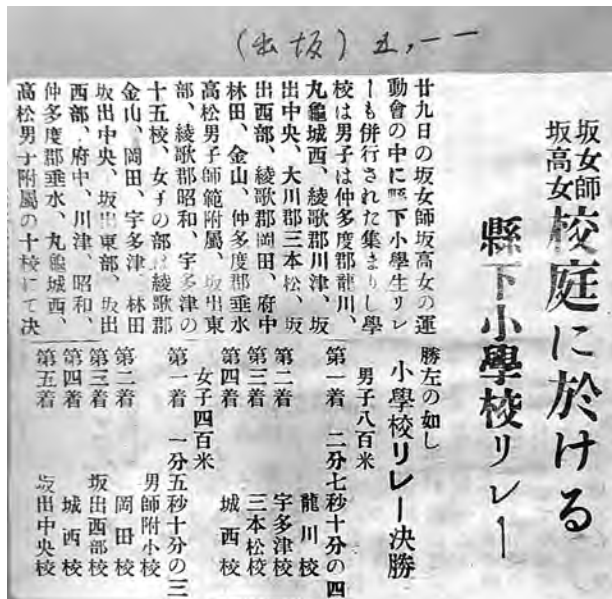 (出坂) 五,一一
坂女師
坂高女
校庭に於ける
縣下小學校リレー
廿九日の坂女師坂高女の運
動會の中に縣下小學生リレ
ーも併行された集まりし學
校は男子は仲多度郡龍川、
丸龜城西、綾歌郡川津、坂
出中央、大川郡三本松、坂
出西部、綾歌郡岡田、府中
林田、金山、仲多度郡垂水
高松男子師範附屬、坂出東
部、綾歌郡昭和、宇多津の
十五校、女子の部は綾歌郡
金山、岡田、宇多津、林田
坂出中央、坂出東部、坂出
西部、府中、川津、昭和、
仲多度郡垂水、丸龜城西、
高松男子附屬の十校にて決
勝左の如し
小學校リレー決勝
男子八百米
第一着 二分七秒十分の四
龍川校
第二着 宇多津校
第三着 三本松校
第四着 城西校
女子四百米
第一着 一分五秒十分の三
男師附小校
第二着 岡田校
第三着 坂出西部校
第四着 城西校
第五着 坂出中央校